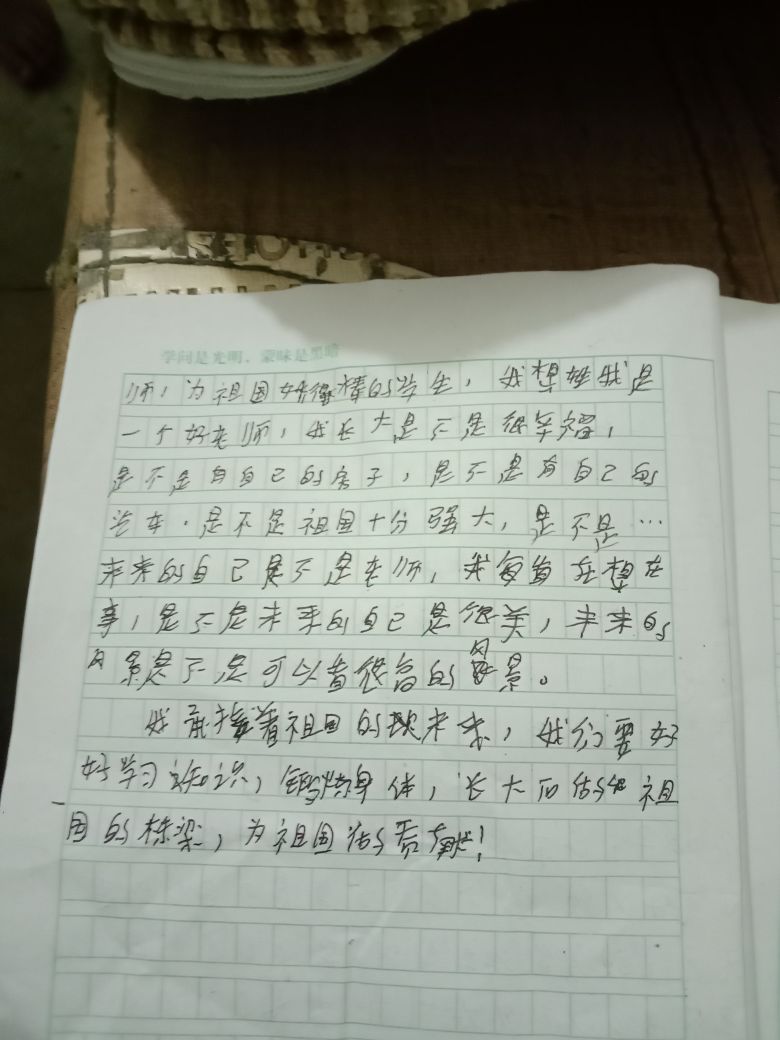 学问是光明，蒙昧是黑暗
师，为祖国好得棒的学生，我想知我是
一个好老师，我长大是不是很幸福，
是不是有自己的房子，是不是有自己的
汽车．是不是祖国十分强大，是不是…
未来的自己是不是老师，我每当在想在
事，是不是未来的自己是很美，未来的
风景是不是可以看很高的风景。
我承接着祖国的未来，我们要好
好学习知识，锻炼身体，长大后做祖
国的栋梁，为祖国做贡献！